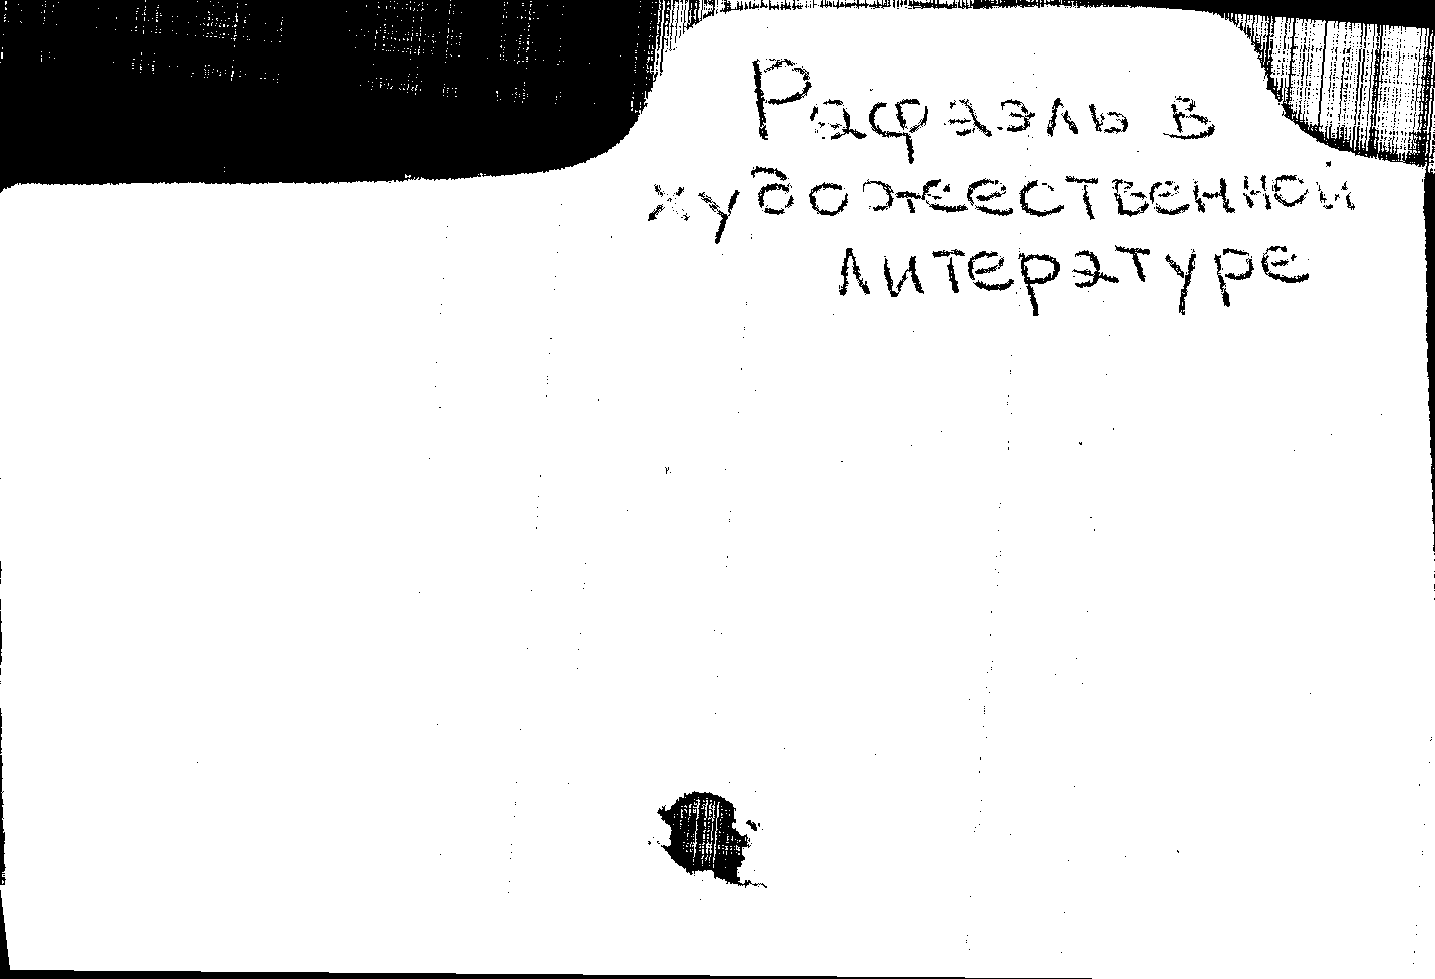 Рафаэль в
художественной
литературе